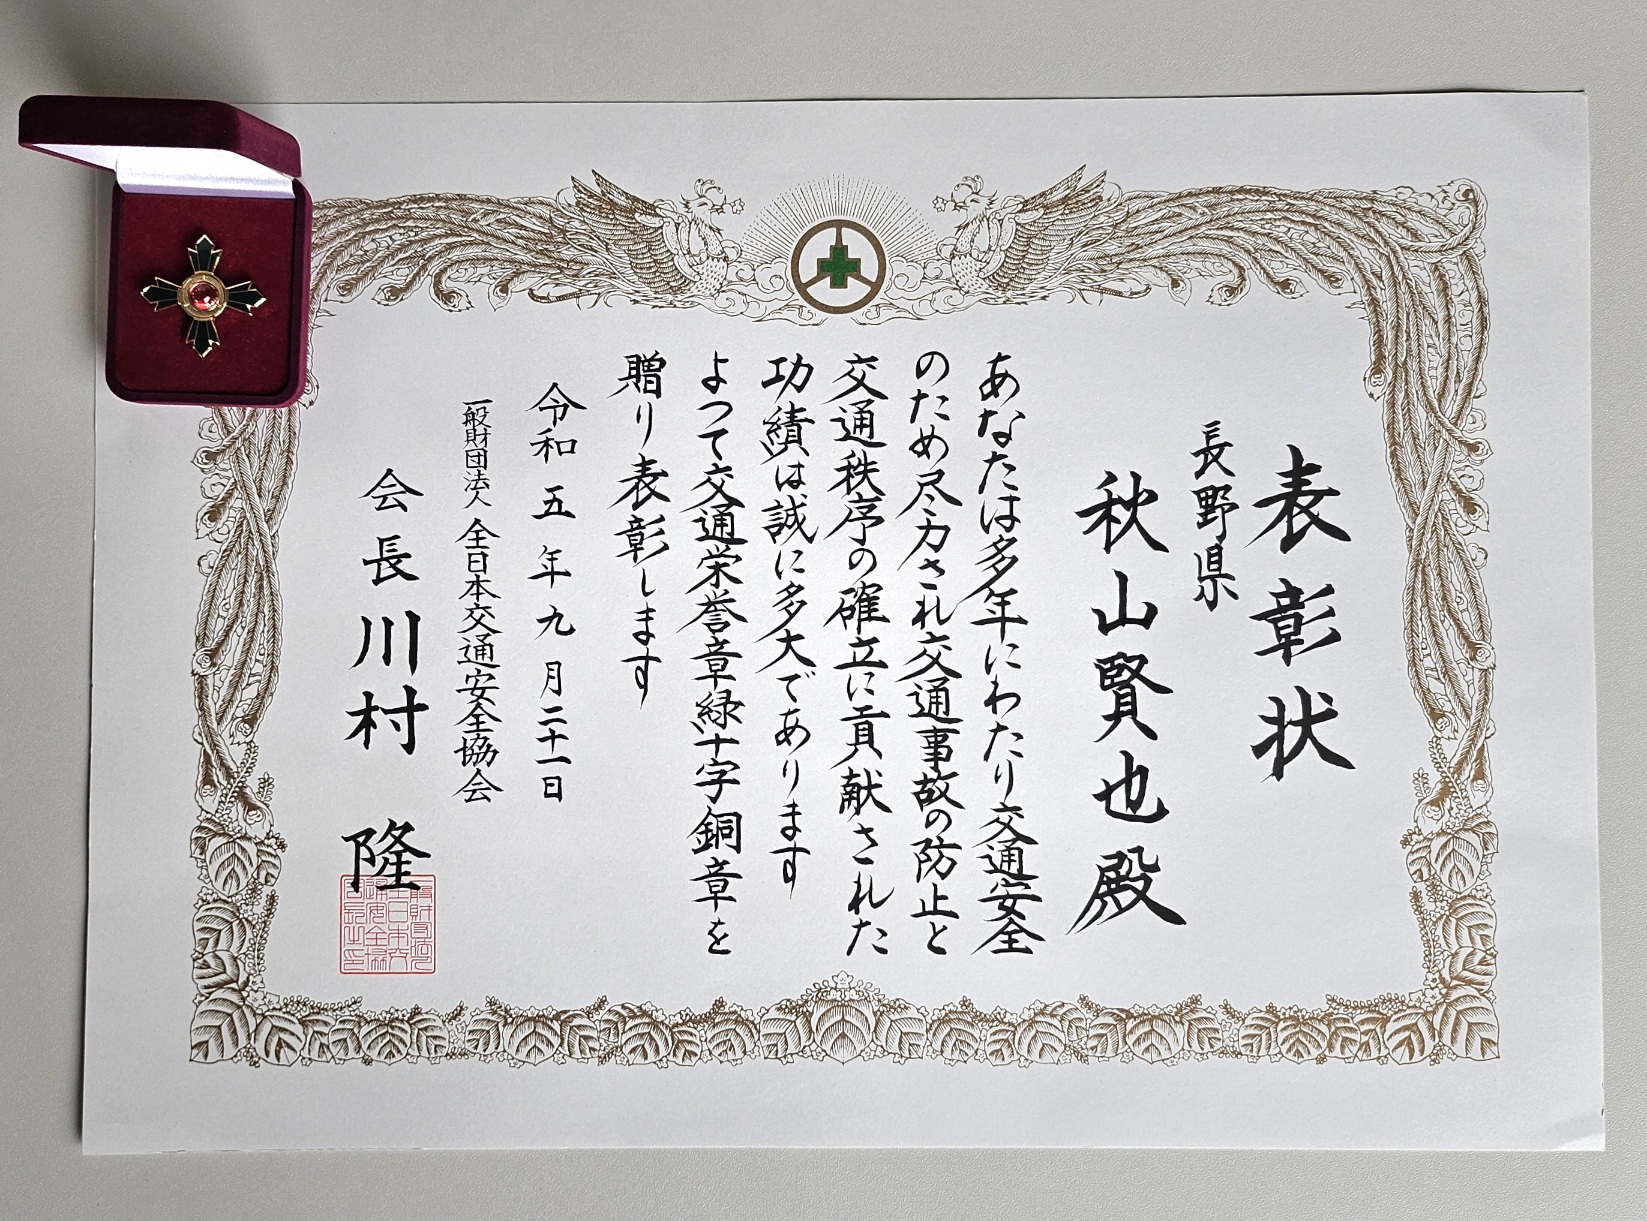 表彰状
長野県
秋山賢也殿
あなたは多年にわたり交通安全
のため尽力され交通事故の防止と
交通秩序の確立に貢献された
功績は誠に多大であります
よつて交通栄誉章緑十字銅章を
贈り表彰します
令和五年九月二十一日
一般財団法人 全日本交通安全協会
会長 川村 隆